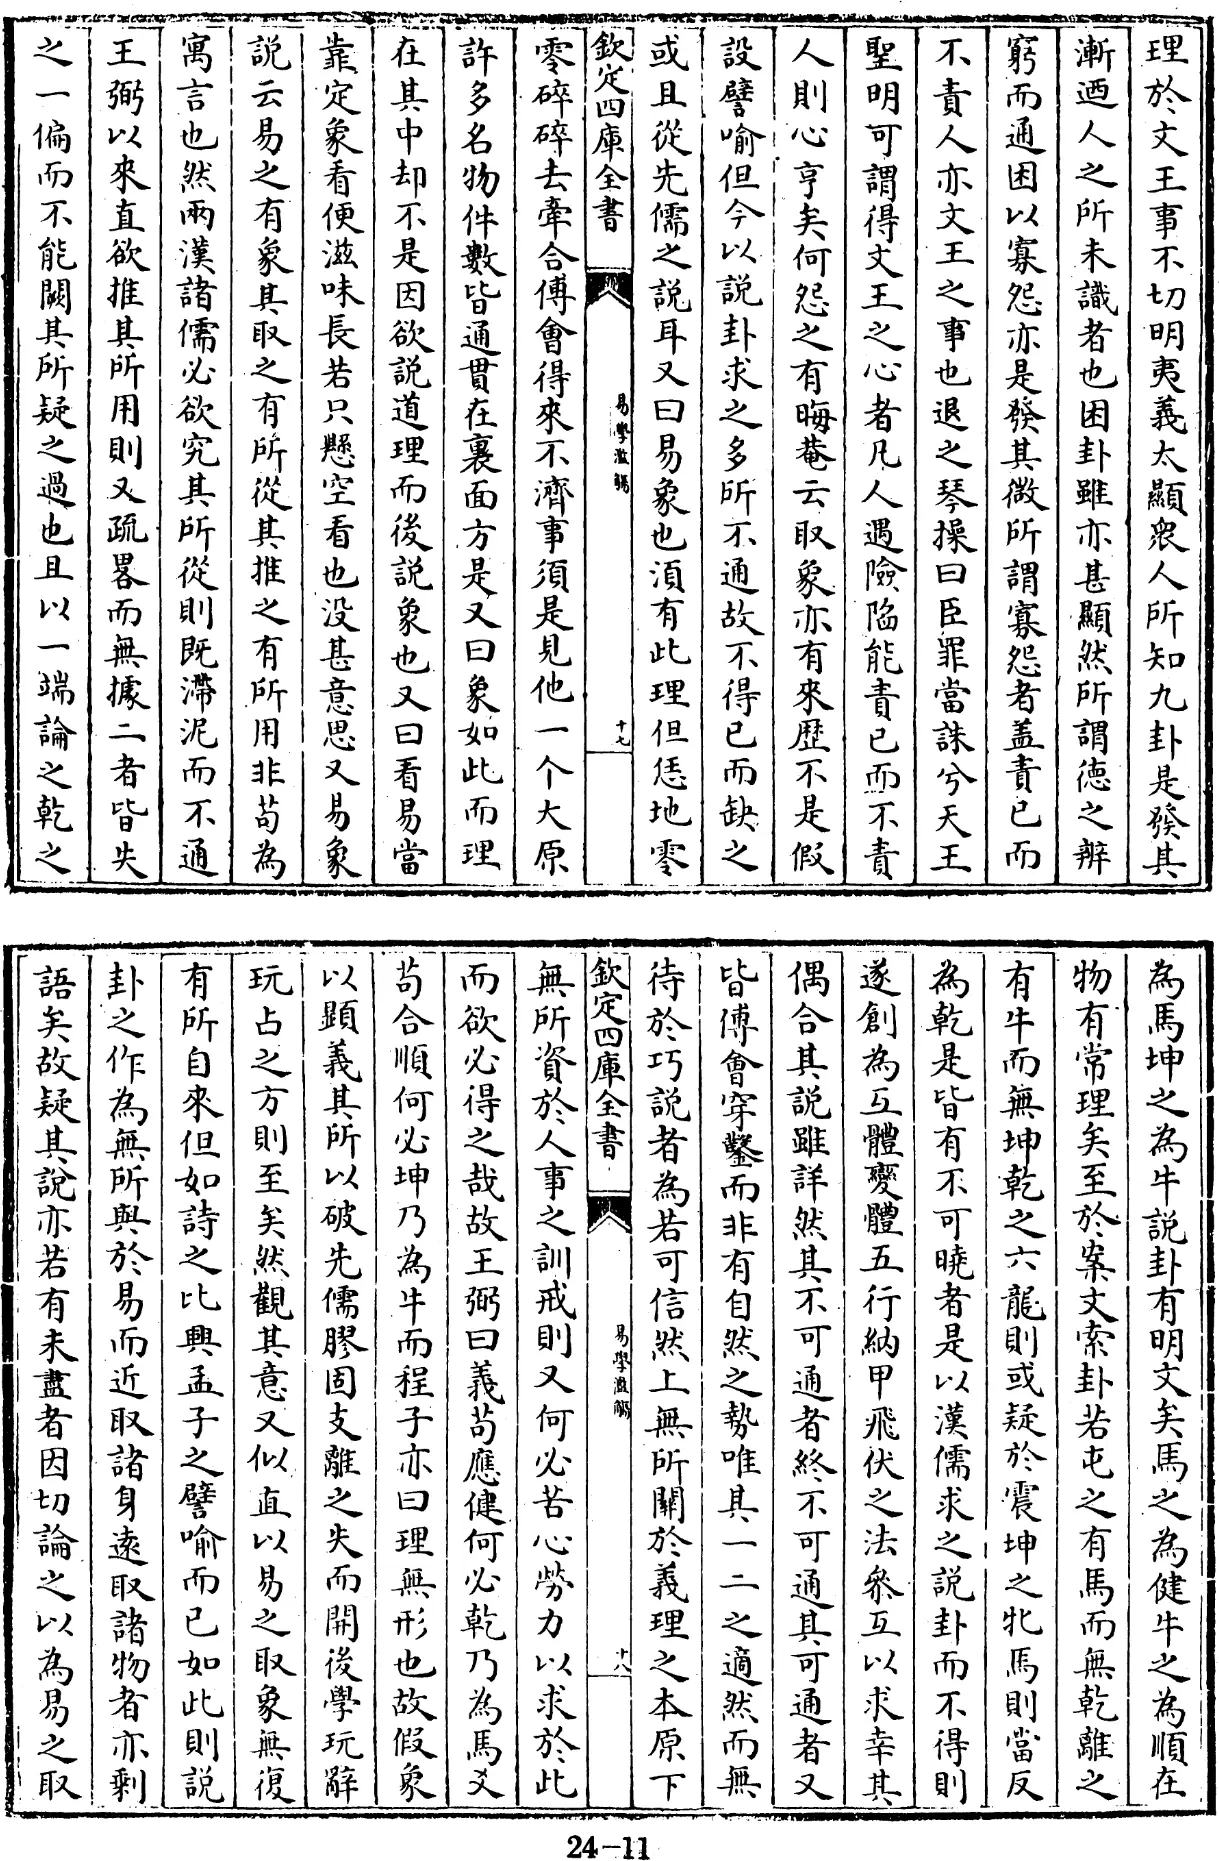 理於文王事不切明夷義太顯衆人所知九卦是發其
漸迺人之所未識者也困卦雖亦甚顯然所謂德之辨
窮而通困以寡怨亦是發其微所謂寡怨者盖責己而
不責人亦文王之事也退之琴操曰臣罪當誅兮天王
聖明可謂得文王之心者凡人遇險陷能責己而不責
人則心亨矣何怨之有晦菴云取象亦有來歷不是假
設譬喻但今以説卦求之多所不通故不得已而缺之
或且從先儒之説耳又曰易象也湏有此理但恁地零
欽定四庫全書
易學濫觴
十七
零碎碎去牽合傅會得來不濟事須是見他一个大原
許多名物件數皆通貫在裏面方是又曰象如此而理
在其中却不是因欲説道理而後説象也又曰看易當
靠定象看便滋味長若只懸空看也没甚意思又易象
説云易之有象其取之有所從其推之有所用非苟為
寓言也然兩漢諸儒必欲究其所從則既滯泥而不通
王弼以來直欲推其所用則又疏畧而無據二者皆失
之一偏而不能闕其所疑之過也且以一端論之乾之
為馬坤之為牛説卦有明文矣馬之為健牛之為順在
物有常理矣至於案文索卦若屯之有馬而無乾離之
有牛而無坤乾之六龍則或疑於震坤之牝馬則當反
為乾是皆有不可曉者是以漢儒求之説卦而不得則
遂創為互體變體五行納甲飛伏之法叅互以求幸其
偶合其説雖詳然其不可通者終不可通其可通者又
皆傅會穿鑿而非有自然之勢唯其一二之適然而無
待於巧説者為若可信然上無所關於義理之本原下
欽定四庫全書
易學濫觴
十八
無所資於人事之訓戒則又何必苦心勞力以求於此
而欲必得之哉故王弼曰義苟應健何必乾乃為馬爻
苟合順何必坤乃為牛而程子亦曰理無形也故假象
以顯義其所以破先儒膠固支離之失而開後學玩辭
玩占之方則至矣然觀其意又似直以易之取象無復
有所自來但如詩之比興孟子之譬喻而已如此則説
卦之作為無所與於易而近取諸身遠取諸物者亦剩
語矣故疑其説亦若有未盡者因切論之以為易之取
24-11